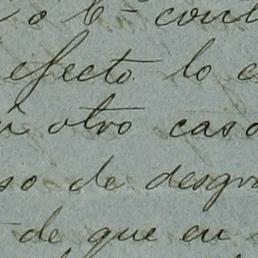 o 6º cont
efecto lo c
n otro caso
so de desgr
de que en